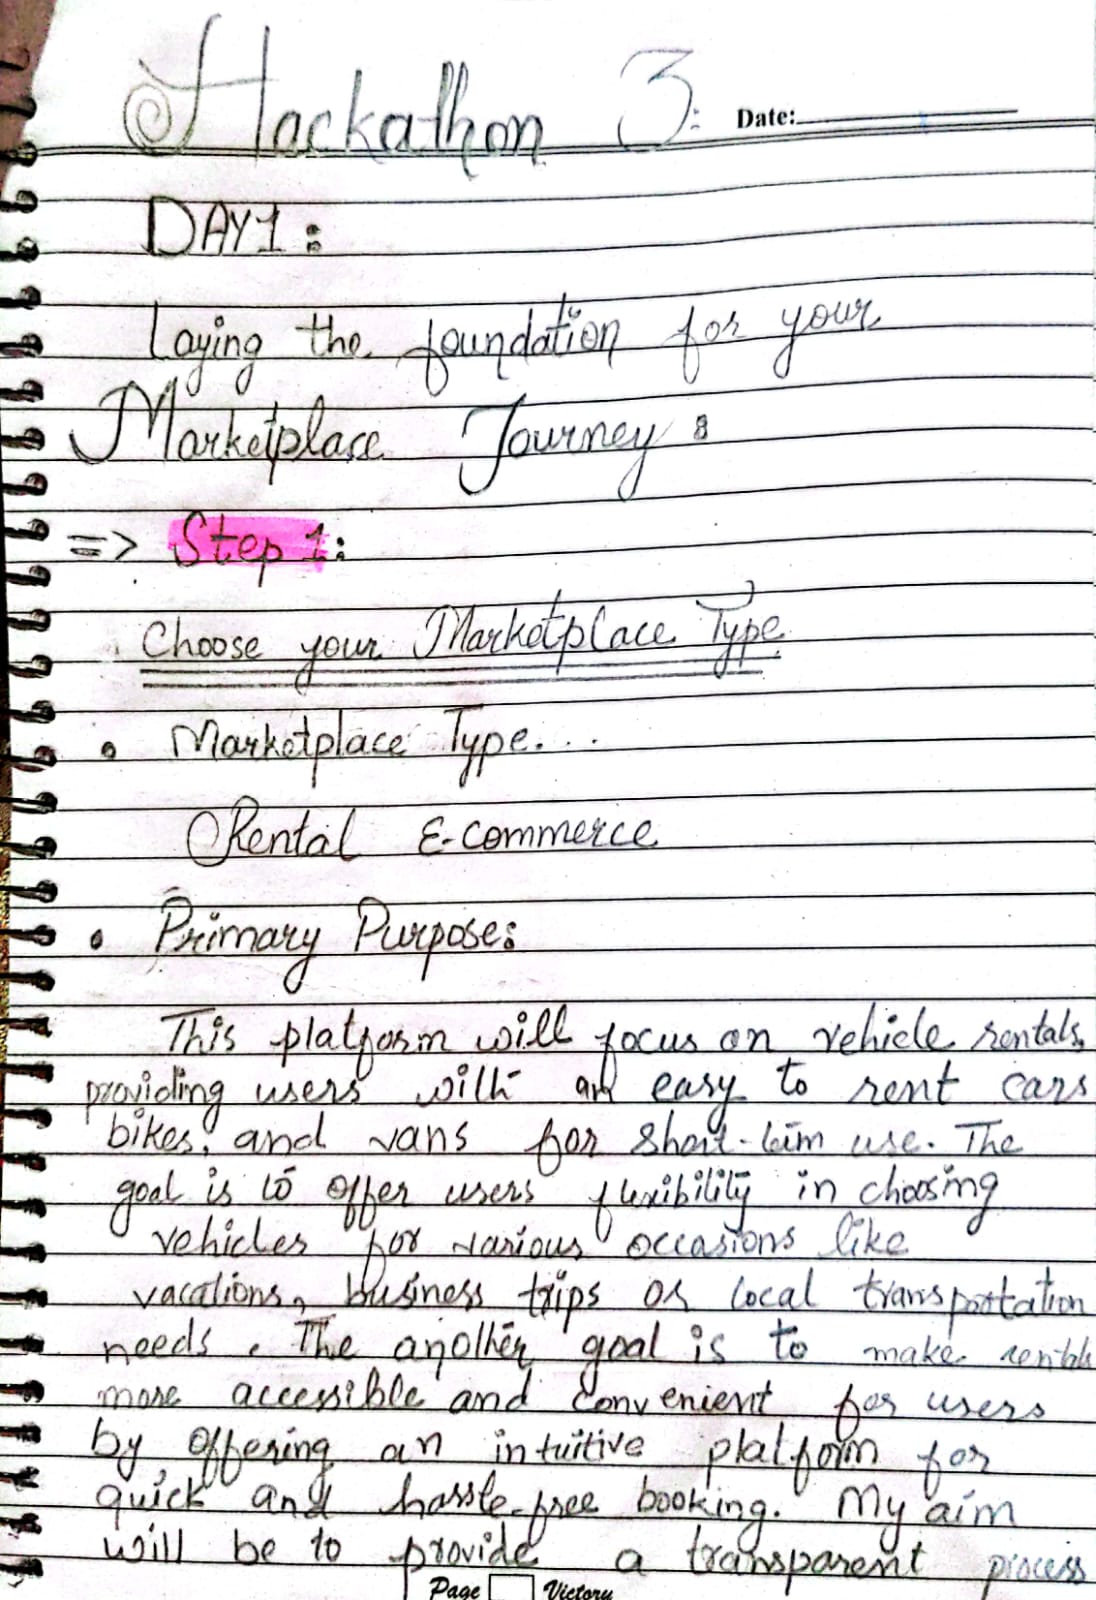 Hackathon 3:
Date:
DAY1:
Laying the foundation for your
Marketplace Journey:
=> Step 1:
Choose your Marketplace Type
• Marketplace Type...
Rental E-commerce
• Primary Purpose:
This platform will focus on vehicle rentals,
providing users with an easy to rent cars
bikes, and vans for short-term use. The
goal is to offer users flexibility in choosing
vehicles for various occasions like
vacations, business trips or local transportation
needs. The another goal is to make rentals
more accessible and convenient for users
by offering an intuitive platform for
quick and hassle-free booking. My aim
will be to provide a transparent process
Page Victory